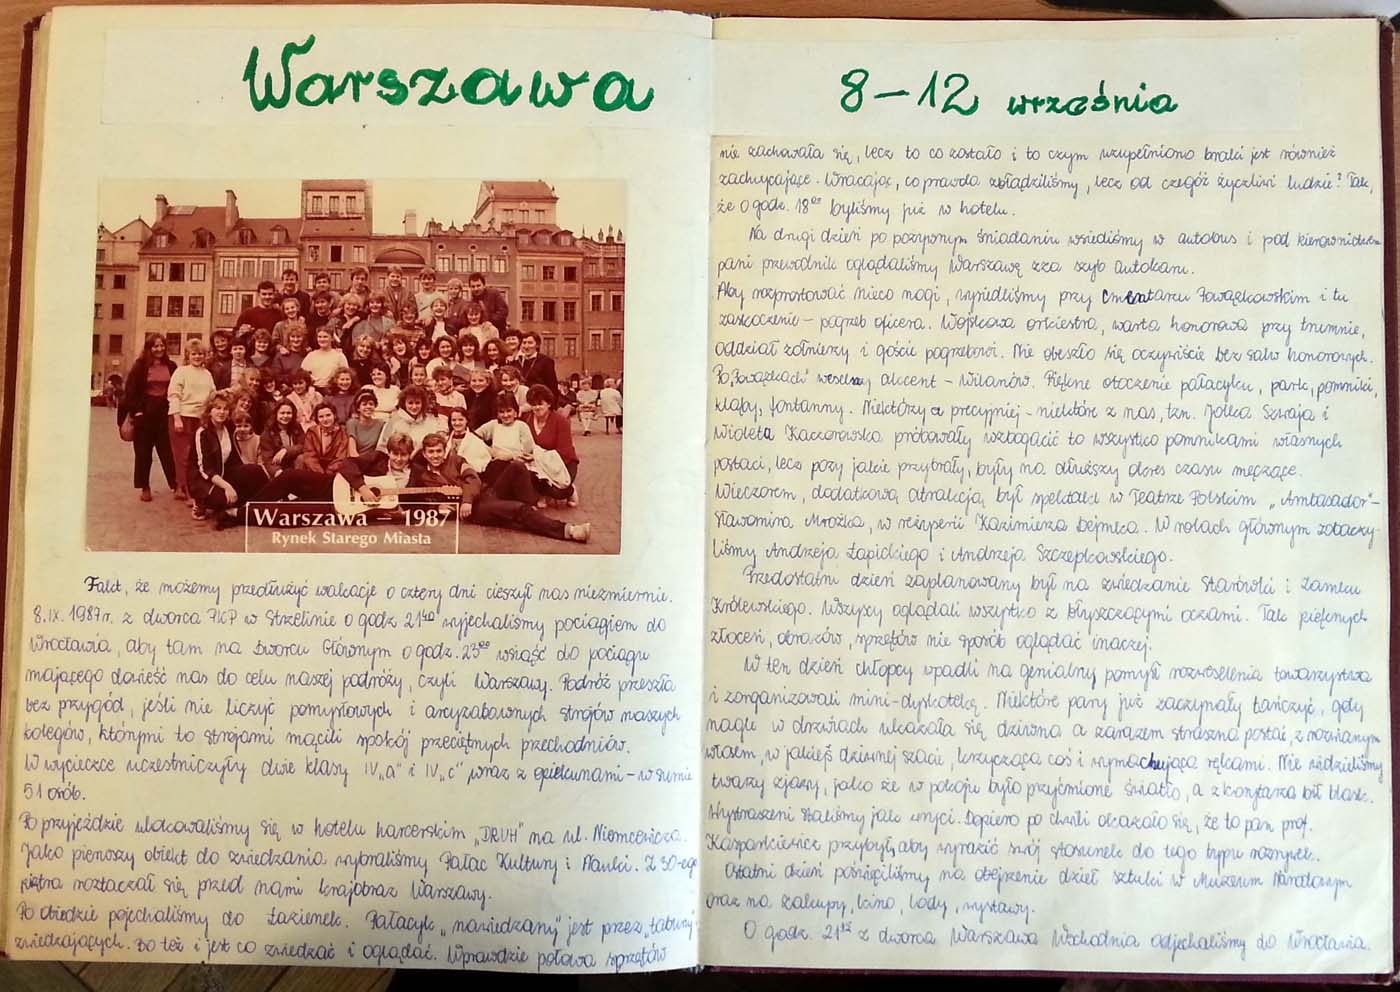 Warszawa
Warszawa – 1987
Rynek Starego Miasta
Fakt, że możemy przedłużyć wakacje o cztery dni cieszył nas niezmiernie.
8.IX.1987r. z dworca PKP w Strzelinie o godz 21⁴⁰ wyjechaliśmy pociągiem do
Wrocławia, aby tam na Dworcu Głównym o godz. 23⁰⁰ wsiąść do pociągu
mającego dowieść nas do celu naszej podróży, czyli Warszawy. Podróż przeszła
bez przygód, jeśli nie liczyć pomysłowych i arcyzabawnych strojów naszych
kolegów, którymi to strojami mącili spokój przeciętnych przechodniów.
W wycieczce uczestniczyły dwie klasy IV„a" i IV„c" wraz z opiekunami – w sumie
51 osób.
Po przyjeździe ulokowaliśmy się w hotelu harcerskim „DRUH" na ul. Niemcewicza.
Jako pierwszy obiekt do zwiedzania wybraliśmy Pałac Kultury i Nauki. Z 30-ego
piętra roztaczał się przed nami krajobraz Warszawy.
Po obiedzie pojechaliśmy do Łazienek. Pałacyk „nawiedzany" jest przez „tabuny"
zwiedzających. Bo też i jest co zwiedzać i oglądać. Wprawdzie połowa sprzętów
8–12 września
nie zachowała się, lecz to co zostało i to czym uzupełniono braki jest również
zachwycające. Wracając, co prawda zbłądziliśmy, lecz od czegóż życzliwi ludzie? Tak,
że o godz. 18⁰⁰ byliśmy już w hotelu.
Na drugi dzień po pożywnym śniadaniu wsiedliśmy w autobus i pod kierownictwem
pani przewodnik oglądaliśmy Warszawę zza szyb autokaru.
Aby rozprostować nieco nogi, wysiedliśmy przy cmentarzu Powązkowskim i tu
zaskoczenie – pogrzeb oficera. Wojskowa orkiestra, warta honorowa przy trumnie,
oddział żołnierzy i goście pogrzebowi. Nie obeszło się oczywiście bez salw honorowych.
Po „Powązkach" weselszy akcent – Wilanów. Piękne otoczenie pałacyku, park, pomniki,
kląby, fontanny. Niektórzy a precyzyjniej – niektóre z nas, tzn. Jolka Szwaja i
Wioleta Kaczorowska próbowały wzbogacić to wszystko pomnikami własnych
postaci, lecz pozy jakie przybrały, były na dłuższy okres czasu męczące.
Wieczorem, dodatkową atrakcją był spektakl w Teatrze Polskim „Ambasador"–
Sławomira Mrożka, w reżyserii Kazimierza Dejmka. W rolach głównym zobaczy-
liśmy Andrzeja Łapickiego i Andrzeja Szczepkowskiego.
Przedostatni dzień zaplanowany był na zwiedzanie Starówki i Zamku
Królewskiego. Wszyscy oglądali wszystko z błyszczącymi oczami. Tak pięknych
złoceń, obrazów, sprzętów nie sposób oglądać inaczej.
W ten dzień chłopcy wpadli na genialny pomysł rozweselenia towarzystwa
i zorganizowali mini-dyskotekę. Niektóre pary już zaczynały tańczyć, gdy
nagle w drzwiach ukazała się dziwna a zarazem straszna postać, z rozwianym
włosem, w jakiejś dziwnej szacie, krzycząca coś i wymachująca rękami. Nie widzieliśmy
twarzy zjawy, jako że w pokoju było przyćmione światło, a z korytarza bił blask.
Wystraszeni staliśmy jak wryci. Dopiero po chwili okazało się, że to pan prof.
Kasparkiewicz przybył, aby wyrazić swój stosunek do tego typu rozrywek.
Ostatni dzień poświęciliśmy na obejrzenie dzieł sztuki w Muzeum Narodowym
oraz na zakupy, kino, lody, wystawy.
O godz. 21¹² z dworca Warszawa Wschodnia odjechaliśmy do Wrocławia.